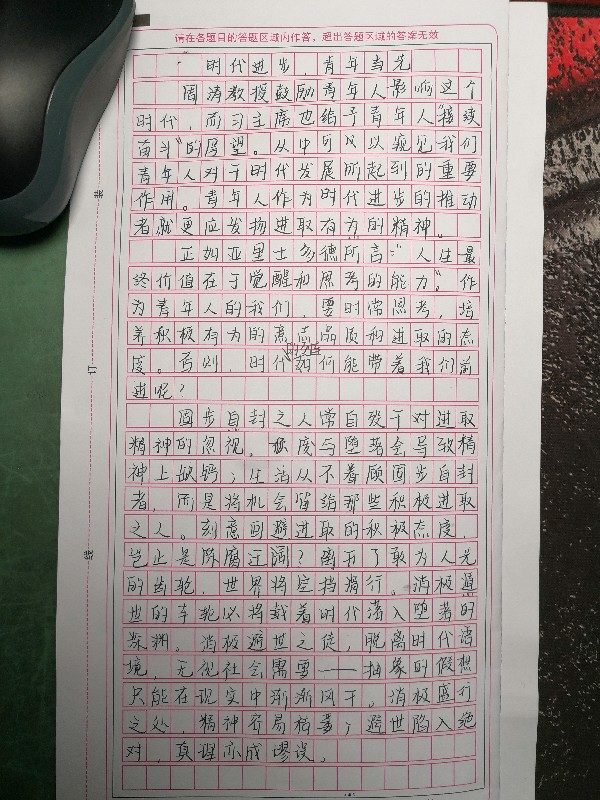 请在各题目的答题区域内作答，超出答题区域的答案无效
时代进步，青年当先
周涛教授鼓励青年人影响这个
时代，而习主席也给予青年人“接续
奋斗”的厚望。从中可以以窥见我们
青年人对于时代发展所起到的重要
作用。青年人作为时代进步的推动
者就更应发扬进取有为的精神。
正如亚里士多德所言：“人生最
终价值在于觉醒和思考的能力”。作
为青年人的我们，要时常思考，培
养积极有为的意志品质和进取的态
度。否则，时代的班如何能带着我们前
进呢？
固步自封之人常自毁于对进取
精神的忽视。极度与堕落会导致精
神上缺钙；生活从不眷顾固步自封
者，而是将机会留给那些积极进取
之人。刻意回避进取的积极态度
岂止是陈腐迂阔？离开了敢为人先
的齿轮，世界将空挡滑行。消极遁
世的车轮必将载着时代落入堕落的
深渊。消极避世之徒，脱离时代语
境，无视社会需要——抽象的假想
只能在现实中渐渐风干。消极盛行
之处 精神容易枯萎；避世陷入绝
对，真理亦成谬误。
装
订
线